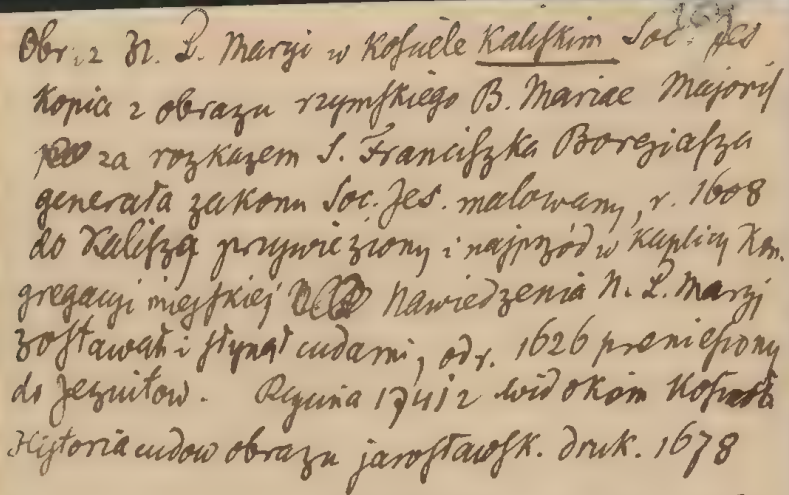 Obraz N. P. Maryi w Kościele Kaliskim Soc. Jes
Kopia z obrazu rzymskiego B. Mariae Majoris
za rozkazem S. Franciszka Borgiasza
generała zakonu Soc. Jes. malowany, r. 1608
do Kalisza przywieziony i najprzód w kaplicy Kon-
gregacyi miejskiej Nawiedzenia N. P. Maryi
zostawał i słynął cudami, od r. 1626 przeniesiony
do Jezuitow. 1741 z widokiem
Historia cudow obrazu jarosławsk. druk. 1678